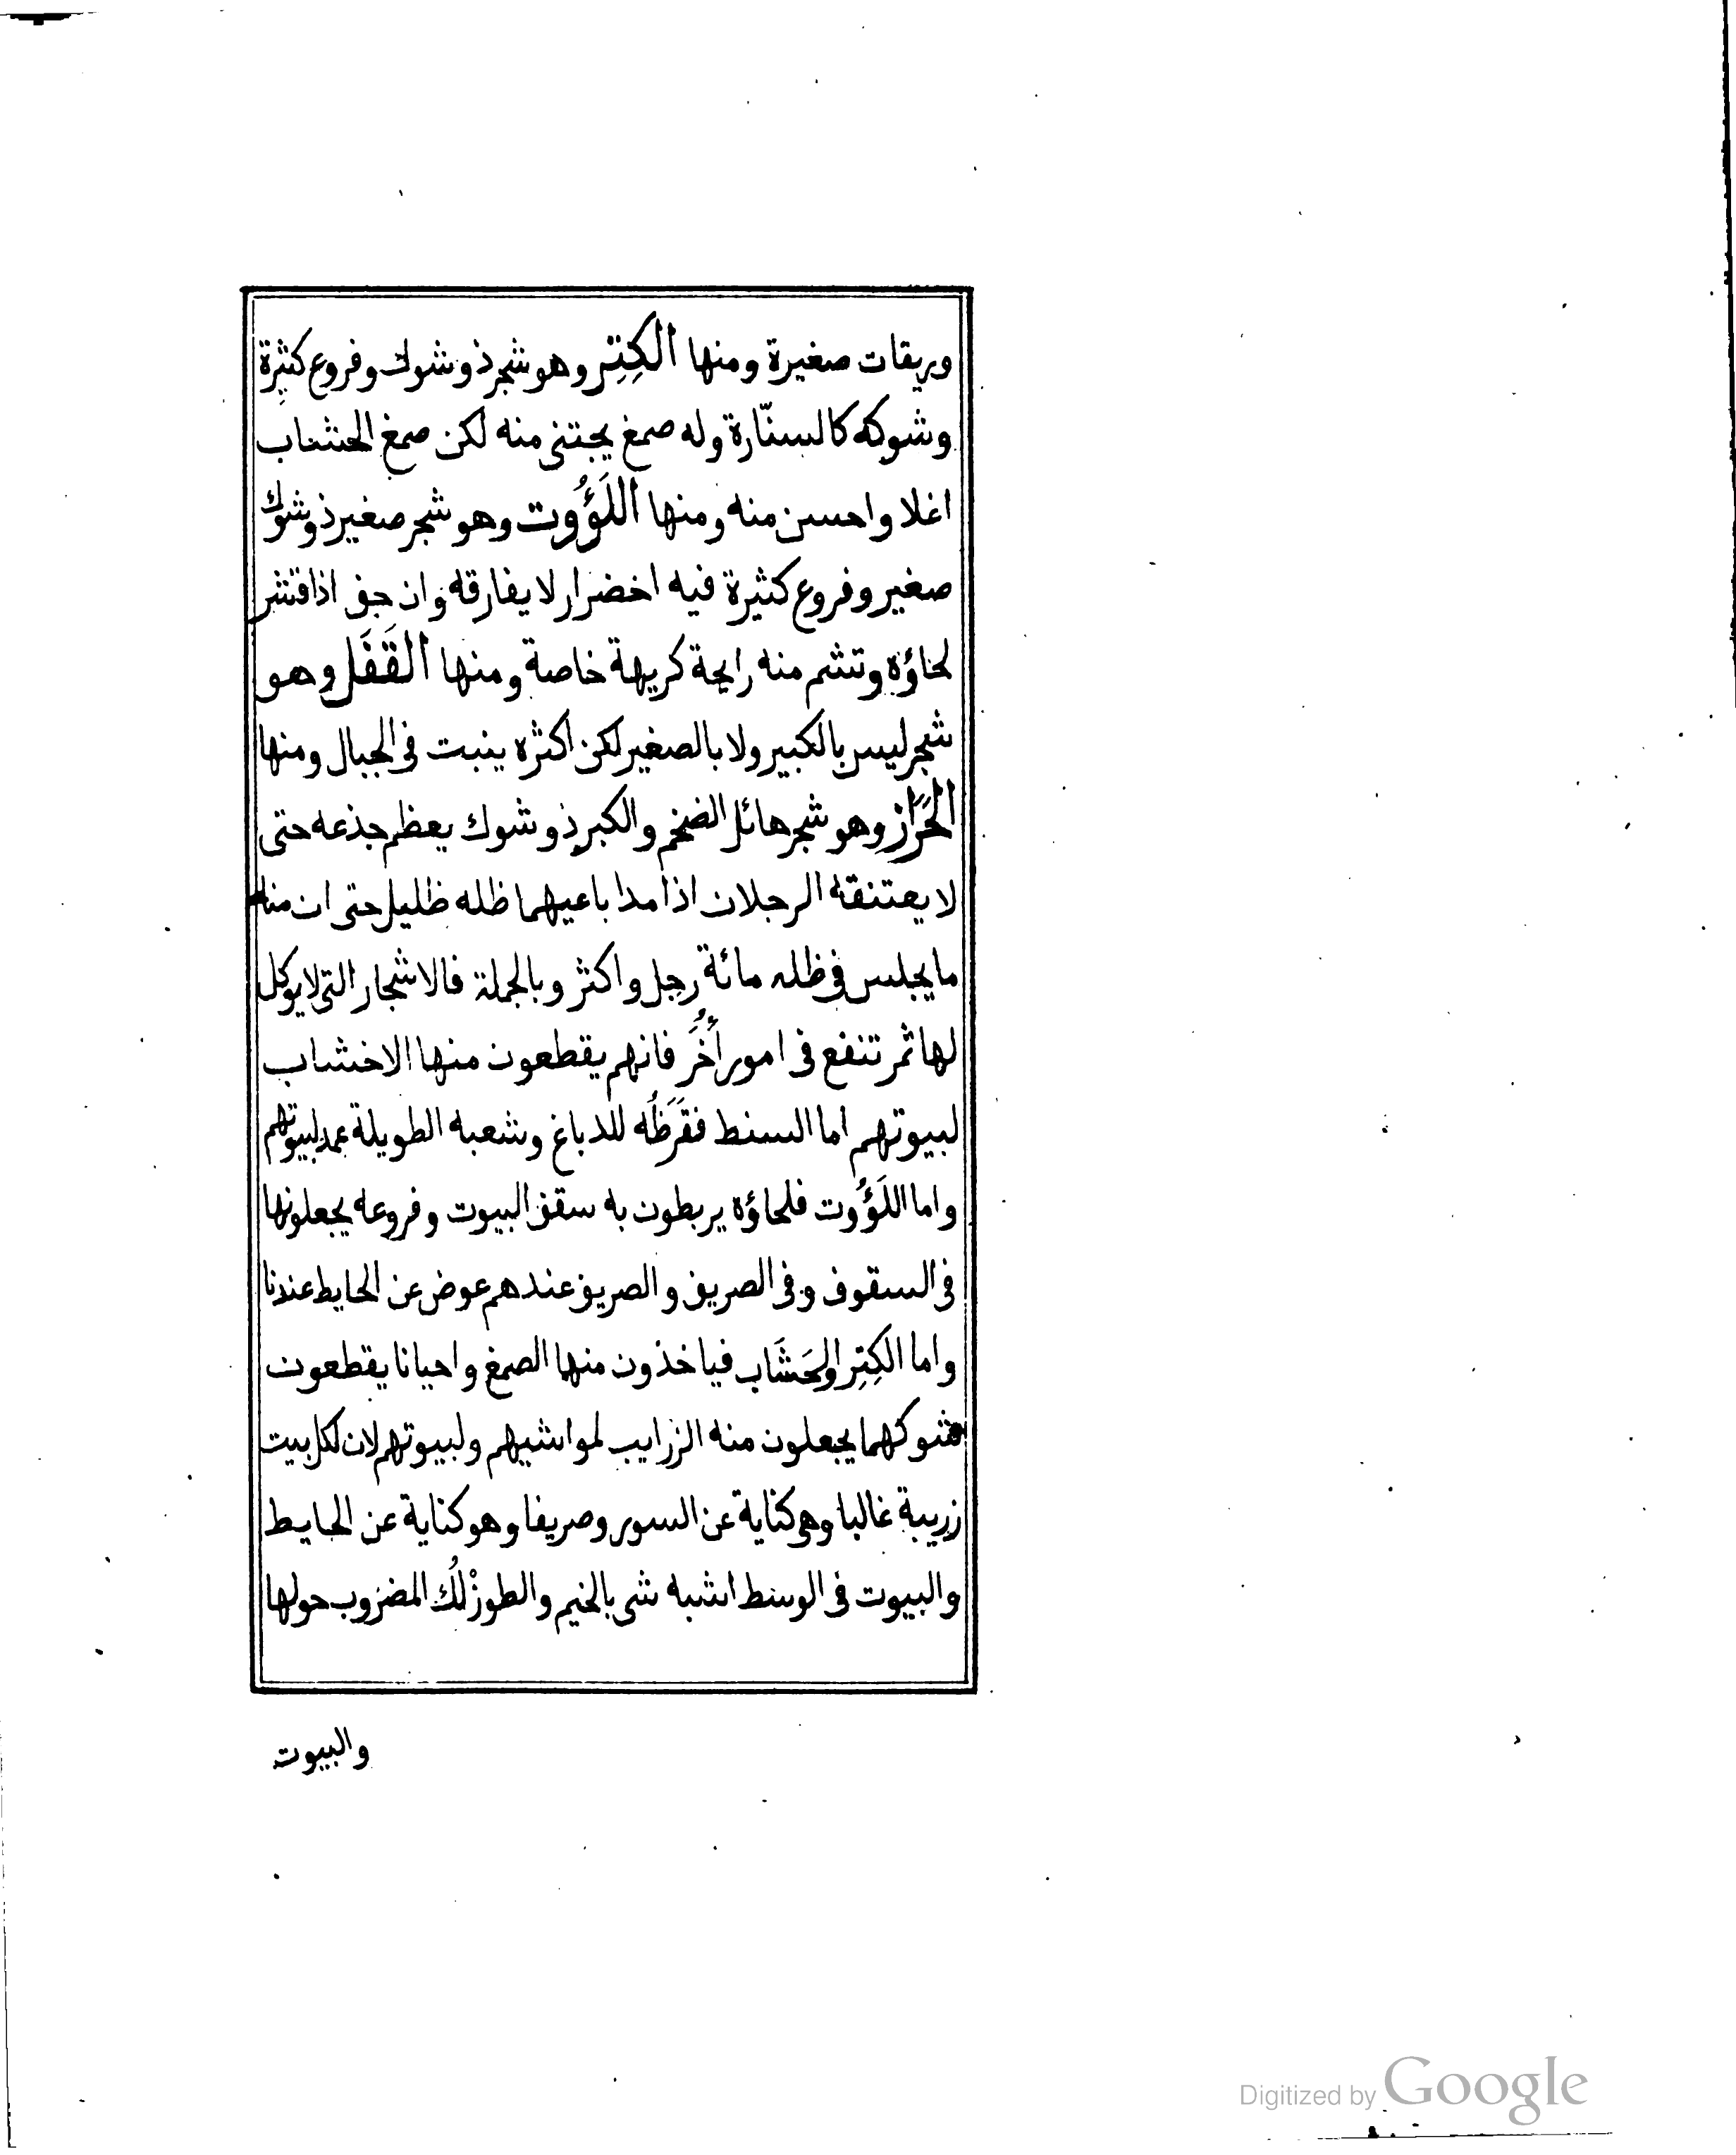 وريقات صغيرة ومنها الكِتِر وهو شجر ذو شوك وفروع كثيرة
وشوكه كالسنّارة وله صمغ يجتنى منه لكن صمغ الحشاب
اغلا واحسن منه ومنها اللَوُّوت وهو شجر صغير ذو شوك
صغير وفروع كثيرة فيه اخضرار لا يفارقه وان جف اذا قشر
لحاؤه وتشم منه رايحة كريهة خاصة ومنها القَفَل وهو
شجر ليس بالكبير ولا بالصغير لكن اكثره ينبت فى الجبال ومنها
الحَرَاز وهو شجر هائل الضخم والكبر ذو شوك يعظم جذعه حتى
لا يعتنقه الرجلان اذا مدا باعيهما ظله ظليل حتى ان منه
ما يجلس فى ظله مائة رجل واكثر وبالجملة فالاشجار التى لا يوكل
لها ثمر تنفع فى امور أُخَرَ فانهم يقطعون منها الاخشاب
لبيوتهم اما السنط فقَرَظُه للدباغ وشعبه الطويلة عمد لبيوتهم
واما اللَوُّوت فلحاؤه يربطون به سقف البيوت وفروعه يجعلونها
فى السقوف وفى الصريف والصريف عندهم عوض عن الحايط عندنا
واما الكِتِر والحَشَاب فياخذون منهما الصمغ واحيانا يقطعون
شوكهما يجعلون منه الزرايب لمواشيهم ولبيوتهم لان لكل بيت
زريبة غالبا وهى كناية عن السور وصريفا وهو كناية عن الحايط
والبيوت فى الوسط اشبه شى بالخيم والطوزْلُك المضروب حولها
والبيوت
Digitized by Google